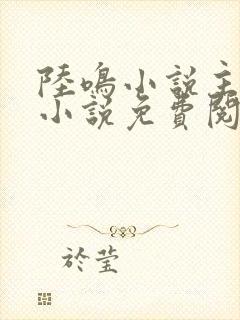 陸鳴小說主
小說免費閱
於莹